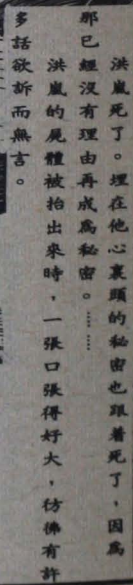 洪嵐死了。埋在他心裏頭的祕密也跟着死了，因爲
那已經沒有理由再成爲祕密。……
洪嵐的屍體被抬出來時，一張口張得好大，彷彿有許
多話欲訴而無言。